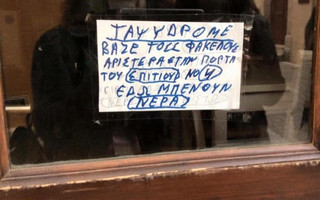 ΤΑΧΥΔΡΟΜΕ
ΒΑΖΕ ΤΟΣΣ ΦΑΚΕΛΟΥΣ
ΑΡΙΣΤΕΡΑ ΣΤΑΝ ΠΟΡΤΑ
ΤΟΥ ΣΠΙΤΙΟΥ ΝΟ 4
ΕΔΩ ΜΠΕΝΟΥΝ
ΝΕΡΑ